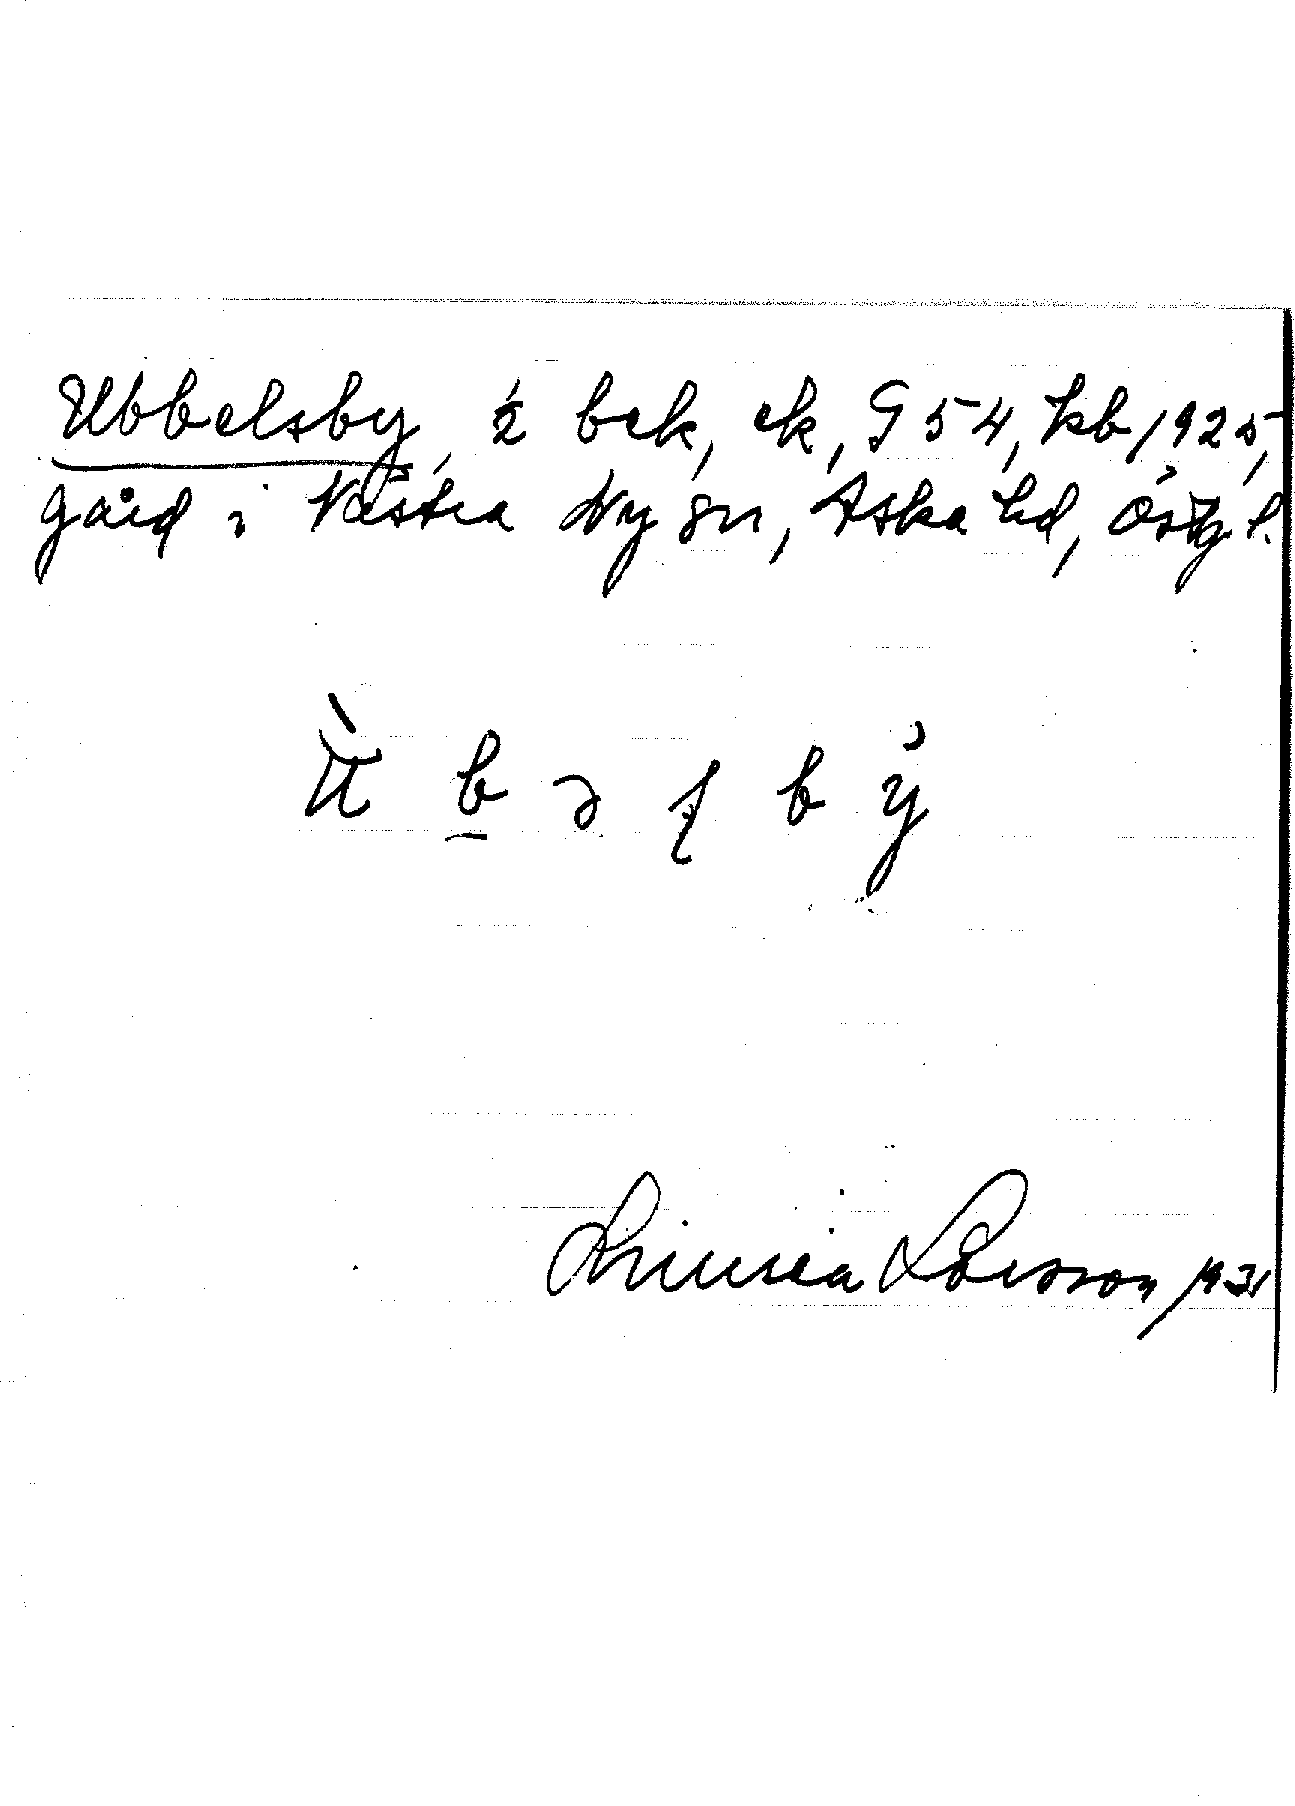 Ubbelsby, ½ bek, ek, G 54, kb 1925,
gård i Västra Ny sn, Aska hd, Östg l.
Linnea Larsson 1931